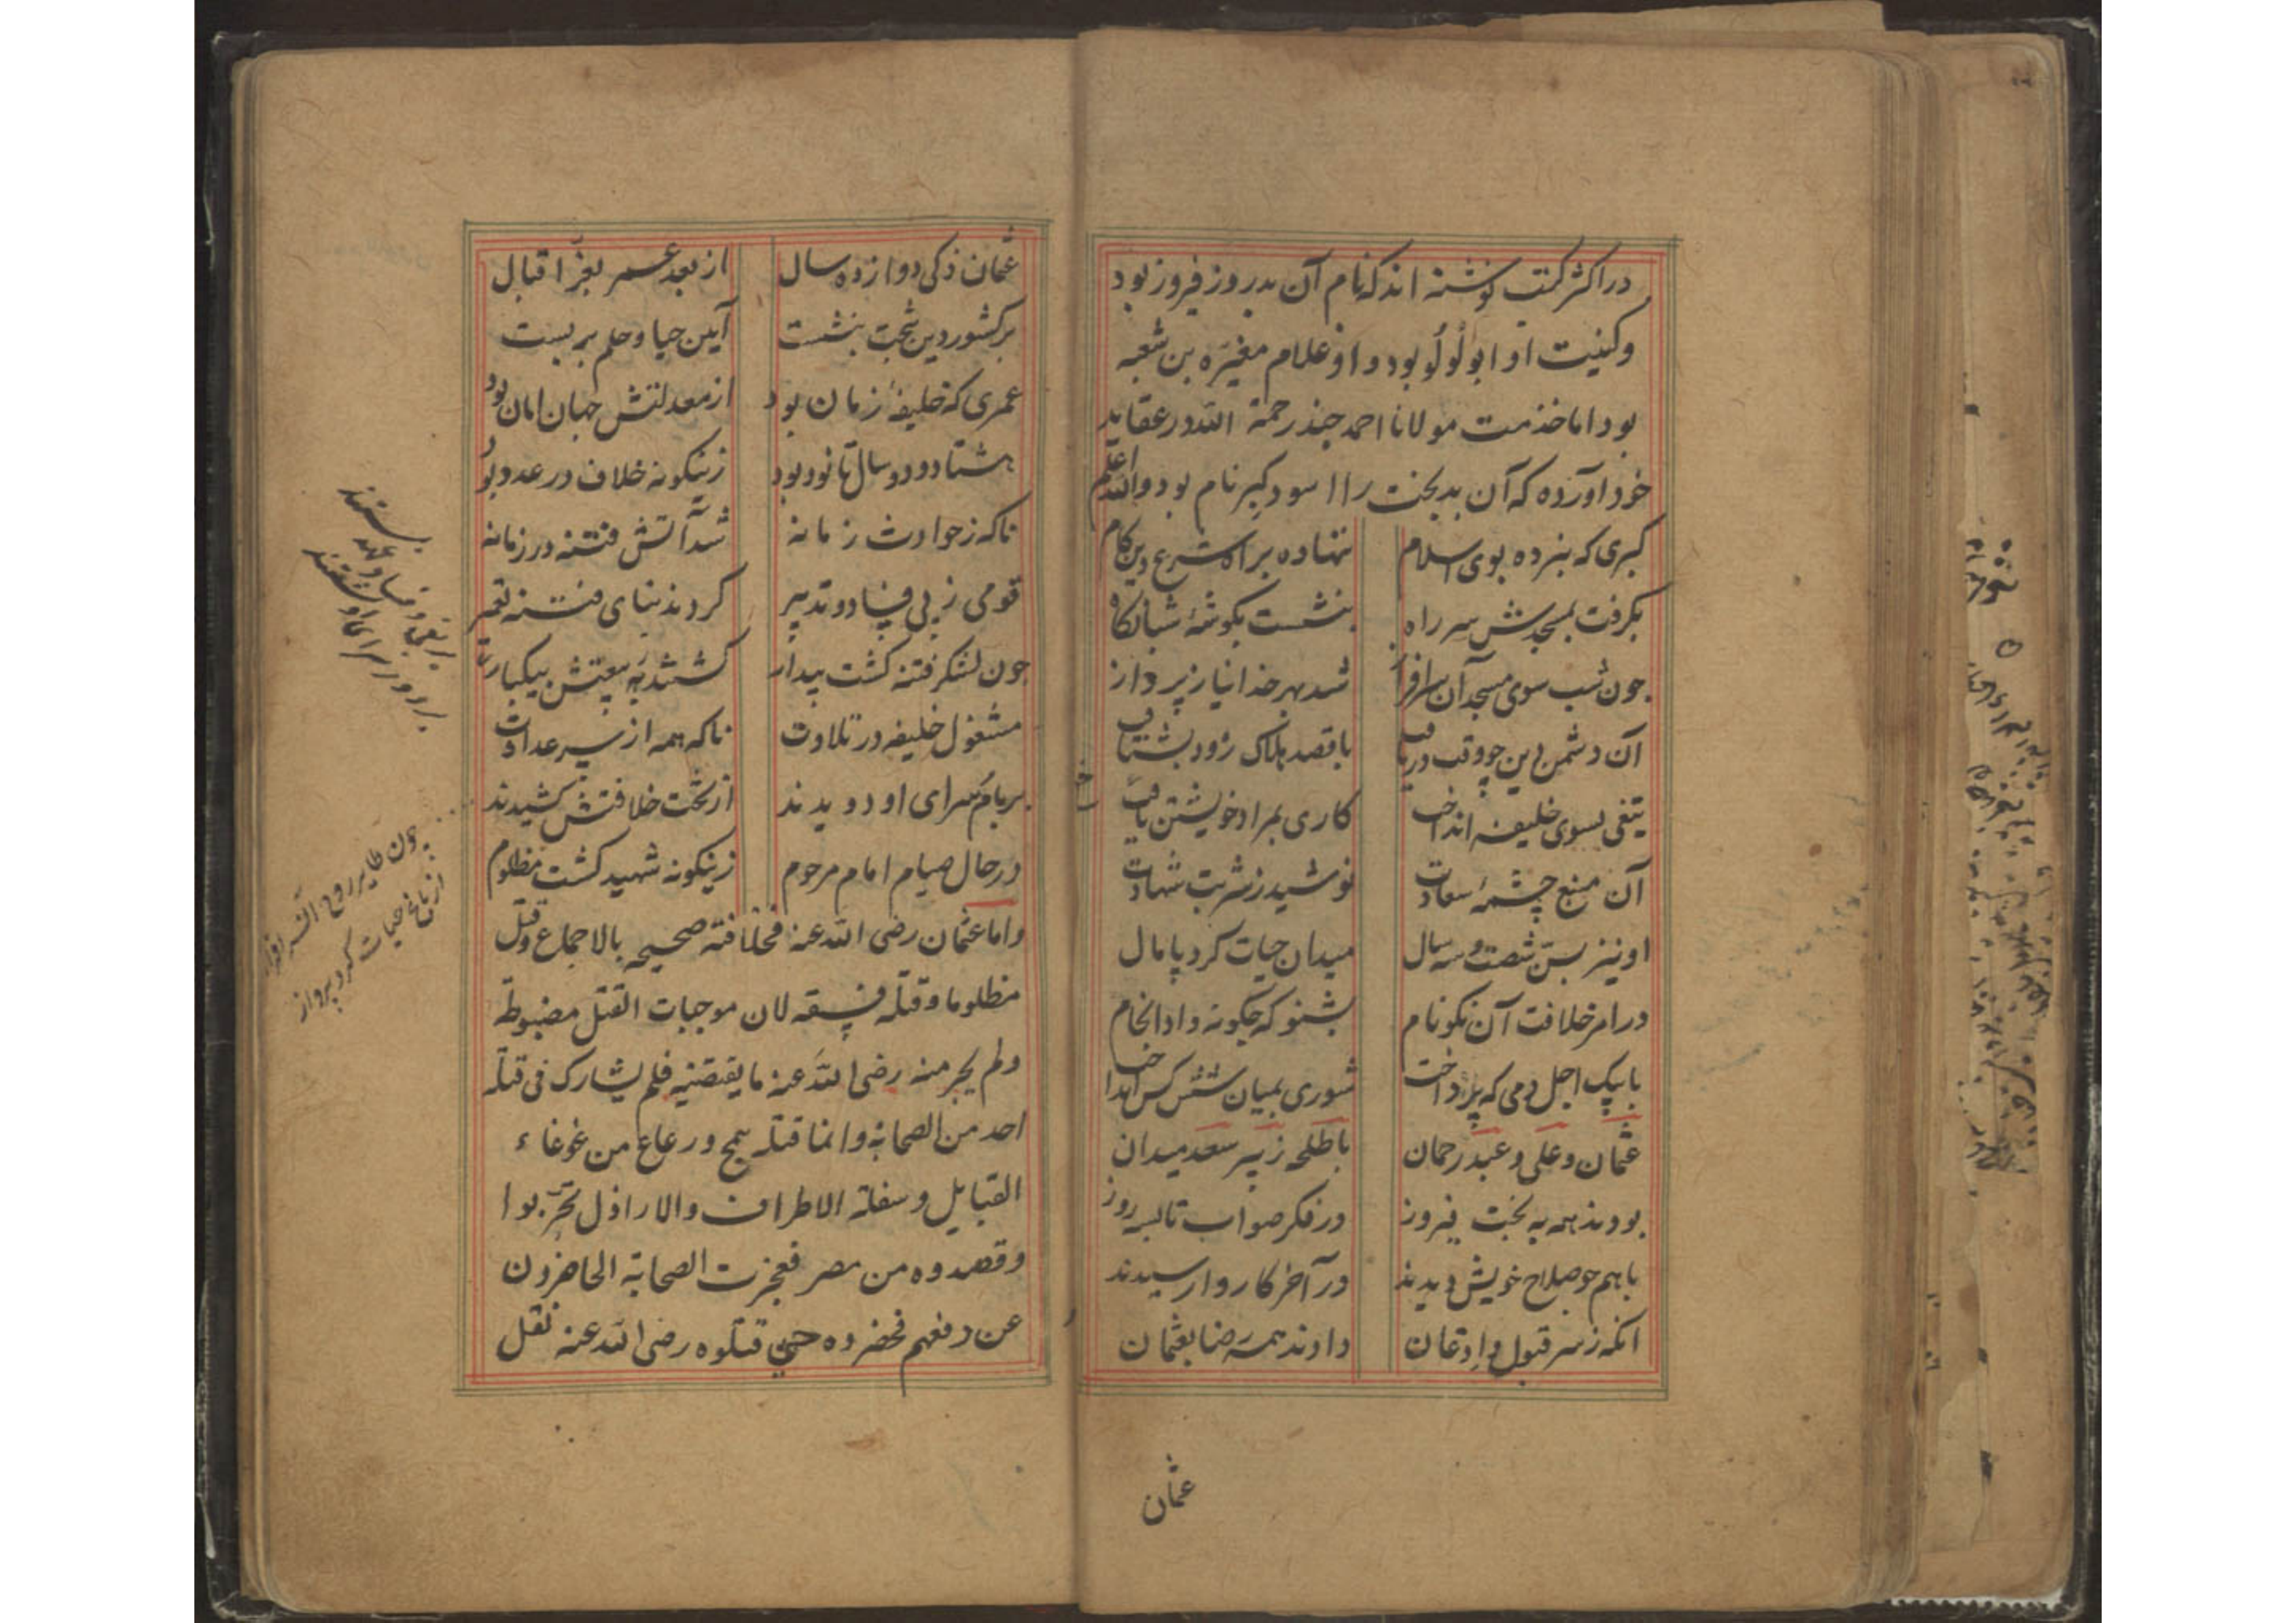 در اکثر کتب نوشته اند که نام آن بدروز فیروز بود
و کنیت او ابو لُولُو بود و او غلام مغیره بن شعبه
بود اما خدمت مولانا احمد جند رحمة الله در عقاید
خود آورده که آن بدبخت را اسود کبر نام بود والله اعلم
کبری که نبرده بوی اسلام ننهاده براه شرع و دین کام
بکرفت بمسجدش سر راه بنشست بکوشهٔ شبانکاه
جون شب سوی مسجد آن سرافراز شد بهر خدا نیاز پرداز
آن دشمن دین چو وقت دریافت با قصد هلاک زود بشتافت
تیغی بسوی خلیفه انداخت کاری بمراد خویشتن یافت
آن منبع چشمهٔ سعادت نوشید ز شربت شهادت
او نیز بسن شصت و سه سال میدان حیات کرد پامال
در امر خلافت آن نکو نام بشنو که چکونه داد انجام
با پیک اجل دمی که پرداخت شوری بمیان شش کس انداخت
عثمان و علی و عبد رحمان با طلحه زبیر سعد میدان
بودند همه به بخت فیروز در فکر صواب تا سه روز
باهم جو صلاح خویش دیدند در آخر کار وارسیدند
آنکه ز سر قبول و اذعان دادند همه رضا بعثمان
عثمان
عثمان ذکی دوازده سال از بعد عمر بعزّ اقبال
بر کشور دین بتخت بنشست آیین حیا و حلم بر بست
عمری که خلیفهٔ زمان بود از معدلتش جهان امان بود
هشتاد و دو سال تا نود بود زینکونه خلاف در عدد بود
ناکه ز حوادث زمانه شد آتش فتنه در زمانه
قومی ز پی فساد و تدبیر کردند بنای فتنه تعمیر
جون لشکر فتنه کشت بیدار کشتند به بیعتش بیکبار
مشغول خلیفه در تلاوت ناکه همه از سر عداوت
بر بام سرای او دویدند از تخت خلافتش کشیدند
در حال صیام امام مرحوم زینکونه شهید کشت مظلوم
و اما عثمان رضی الله عنه فخلافته صحیحه بالاجماع و قتل
مظلوما و قتله فسقه لان موجبات القتل مضبوطة
و لم یجر منه رضی الله عنه ما یقتضیه فلم یشارک فی قتله
احد من الصحابة و انما قتله همج و رعاع من غوغاء
القبایل و سفلة الاطراف والاراذل تحزّبوا
و قصدوه من مصر فعجزت الصحابة الحاضرون
عن دفعهم فحضروه حتی قتلوه رضی الله عنه نقل
چون طایر روح آن
از باغ حیات کرد پرواز